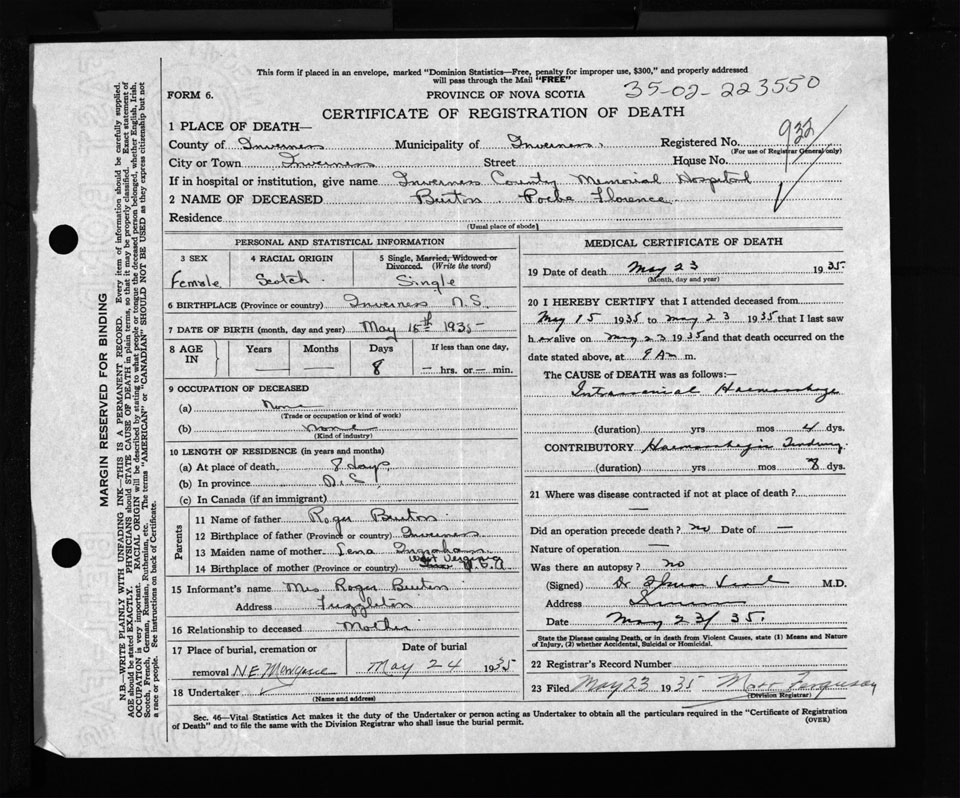 This form if placed in an envelope, marked "Dominion Statistics—Free, penalty for improper use, $300," and properly addressed
will pass through the Mail "FREE"
FORM 6. PROVINCE OF NOVA SCOTIA 35-02-223550
CERTIFICATE OF REGISTRATION OF DEATH
1 PLACE OF DEATH—
County of Inverness Municipality of Inverness. Registered No. 932
(For use of Registrar General only)
City or Town Inverness Street House No.
If in hospital or institution, give name Inverness County Memorial Hospital
2 NAME OF DECEASED Burton Poebe Florence
Residence
(Usual place of abode)
PERSONAL AND STATISTICAL INFORMATION
3 SEX 4 RACIAL ORIGIN 5 Single, Married, Widowed or Divorced. (Write the word)
Female Scotch Single
6 BIRTHPLACE (Province or country) Inverness N.S.
7 DATE OF BIRTH (month, day and year) May 15th 1935
8 AGE IN Years Months Days If less than one day,
— — 8 — hrs. or — min.
9 OCCUPATION OF DECEASED
(a) None
(Trade or occupation or kind of work)
(b) None
(Kind of industry)
10 LENGTH OF RESIDENCE (in years and months)
(a) At place of death, 8 days
(b) In province
(c) In Canada (if an immigrant)
Parents
11 Name of father Roger Burton
12 Birthplace of father (Province or country) Inverness
13 Maiden name of mother. Lena Ingraham
14 Birthplace of mother (Province or country) West Virginia U.S.A
15 Informant's name Mrs Roger Burton
Address
16 Relationship to deceased Mother
17 Place of burial, cremation or removal N E Margaree
Date of burial May 24 1935
18 Undertaker
(Name and address)
MEDICAL CERTIFICATE OF DEATH
19 Date of death May 23 1935.
(Month, day and year)
20 I HEREBY CERTIFY that I attended deceased from
May 15 1935 to May 23 1935 that I last saw
h er alive on May 23 1935 and that death occurred on the
date stated above, at 8 Am m.
The CAUSE of DEATH was as follows:—
Intracranial Haemorrhage
(duration) yrs mos 4 dys.
CONTRIBUTORY Haemorrhagic Tendency
(duration) yrs mos 8 dys.
21 Where was disease contracted if not at place of death?
—
Did an operation precede death? no Date of —
Nature of operation —
Was there an autopsy? no
(Signed) Dr M.D.
Address
Date May 23/35.
State the Disease causing Death, or in death from Violent Causes, state (1) Means and Nature
of Injury, (2) whether Accidental, Suicidal or Homicidal.
22 Registrar's Record Number
23 Filed May 23 1935 Ferguson
(Division Registrar)
Sec. 46—Vital Statistics Act makes it the duty of the Undertaker or person acting as Undertaker to obtain all the particulars required in the "Certificate of Registration
of Death" and to file the same with the Division Registrar who shall issue the burial permit. (OVER)
MARGIN RESERVED FOR BINDING
N.B.—WRITE PLAINLY WITH UNFADING INK—THIS IS A PERMANENT RECORD. Every item of information should be carefully supplied.
AGE should be stated EXACTLY. PHYSICIANS should STATE CAUSE OF DEATH in plain terms, so that it may be properly classified. Exact statement of
OCCUPATION is very important. RACIAL ORIGIN will be described by stating to what people or tongue the deceased person belonged, whether English, Irish,
Scotch, French, German, Russian, Ruthenian, etc. The terms "AMERICAN" or "CANADIAN" SHOULD NOT BE USED as they express citizenship but not
a race or people. See instructions on back of Certificate.